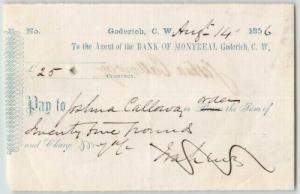 No. Goderich, C. W. Augt 14 1856
To the Agent of the BANK OF MONTREAL Goderich, C. W.
£25
CURRENCY.
Pay to Joshua Calloway or order the Sum of
Twenty five pound
and Charge